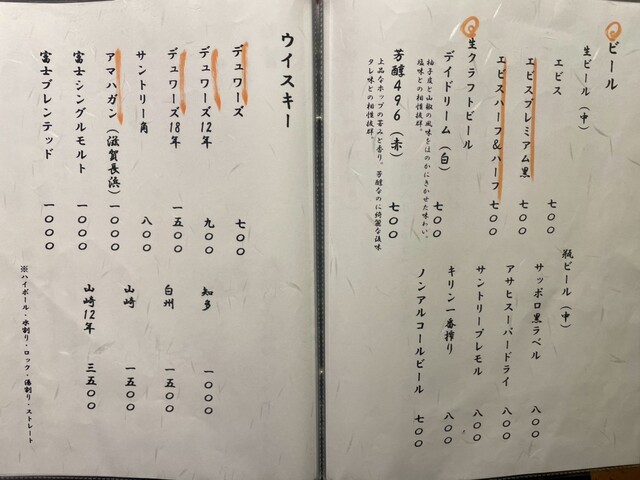 ビール
生ビール(中)
エビス 七〇〇
エビスプレミアム黒 七〇〇
エビスハーフ&ハーフ 七〇〇
生クラフトビール
デイドリーム(白) 七〇〇
柚子皮と山椒の風味をほのかにきかせた味わい。
塩味との相性抜群。
芳醇496(赤) 七〇〇
上品なホップの苦みと香り。芳醇なのに綺麗な後味
タレ味との相性抜群。
瓶ビール(中)
サッポロ黒ラベル 八〇〇
アサヒスーパードライ 八〇〇
サントリープレモル 八〇〇
キリン一番搾り 八〇〇
ノンアルコールビール 七〇〇
ウイスキー
デュワーズ 七〇〇
デュワーズ12年 九〇〇
デュワーズ18年 一五〇〇
サントリー角 八〇〇
アマハガン(滋賀長浜) 一〇〇〇
富士シングルモルト 一〇〇〇
富士ブレンテッド 一〇〇〇
知多 一〇〇〇
白州 一五〇〇
山崎 一五〇〇
山崎12年 三五〇〇
※ハイボール・水割り・ロック・湯割り・ストレート